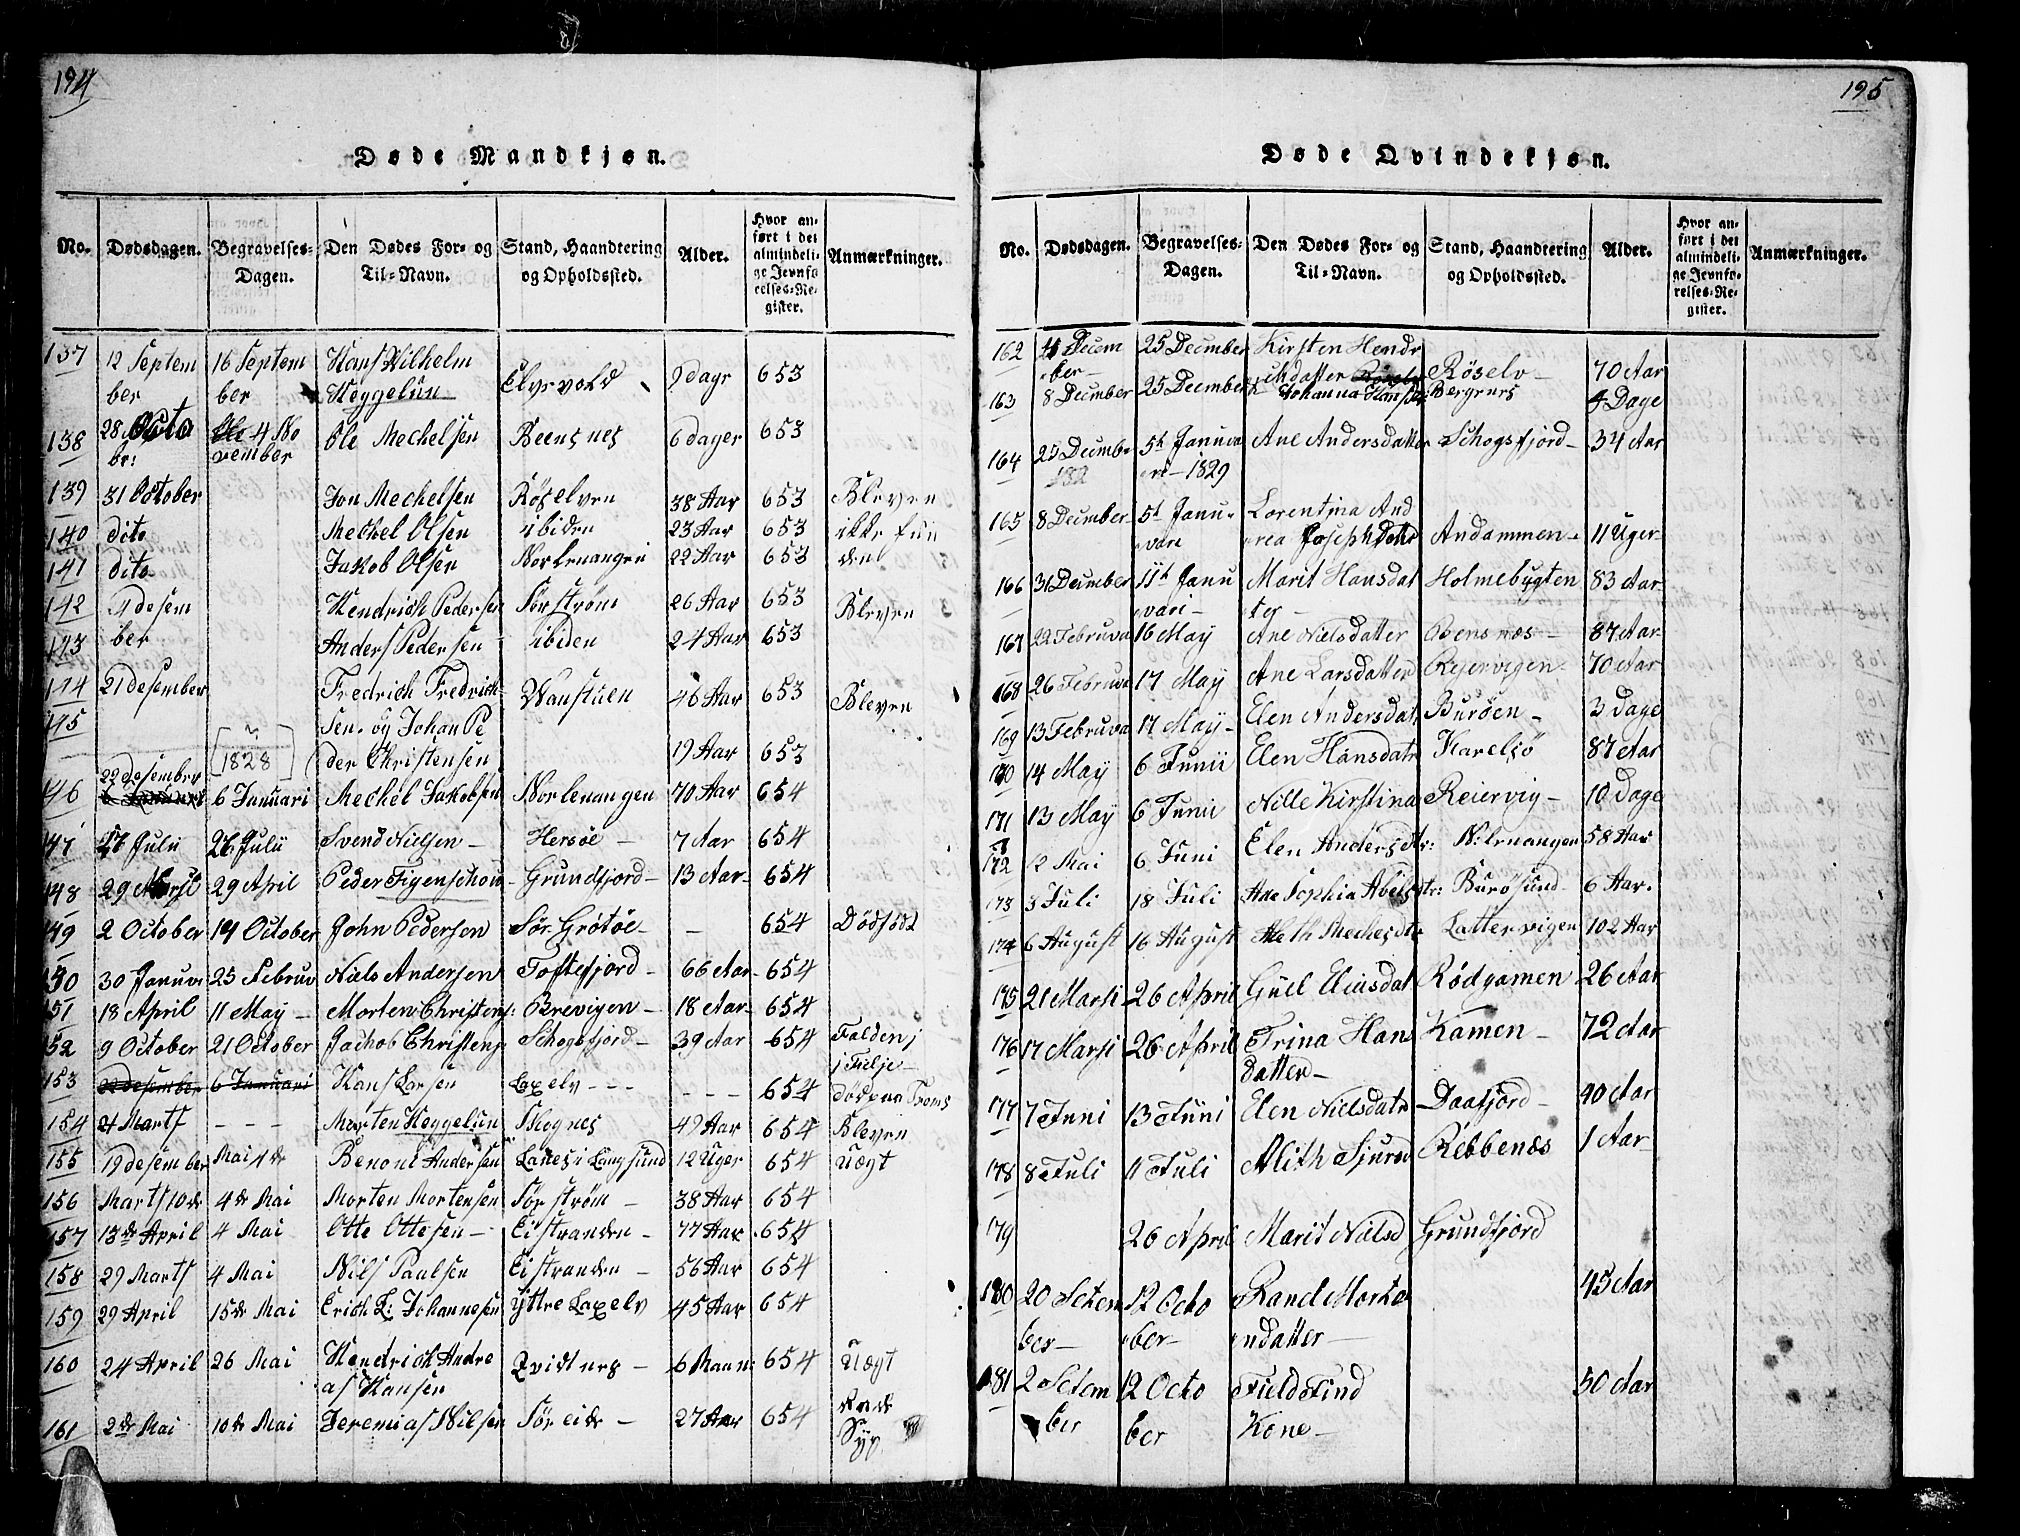 194
Døde Mandkjøn.
No. Dødsdagen. Begravelses-Dagen. Den Dødes For- og Til-Navn. Stand, Haandtering og Opholdssted. Alder. Hvor anført i det almindelige Jevnførelses-Register. Anmærkninger.
137 12 September 16 September Hans Wilhelm Heggelun Elvevold 9 dage 653
138 28 October 4 November Ole Mechelsen Beensnes 6 dager 653
139 31 October Jon Mechelsen Røselven 38 Aar 653 Bleven
140 dito Mechel Olsen ibiden 23 Aar 653 ikke fun
141 dito Jakob Olsen Norlenangen 22 Aar 653 del
142 4 desem Hendrich Pedersen Sørstrøm 26 Aar 653 Bleven
143 ber Anders Pedersen ibiden 24 Aar 653
144 21 desember Fredrich Fredrich- Vanstuen 46 Aar 653 Bleven
145 sen og Johan Pe
1828 der Christensen 19 Aar 653
146 22 desember 6 Januari Mechel Jakobsen Norlenangen 70 Aar 654
147 17 Julii 26 Julii Svend Nielsen - Hersøe - 7 Aar 654
148 29 Marsi 29 April Peder Figenschou - Grundfjord - 13 Aar - 654
149 2 October 14 October John Pedersen Sør Grøtøe - - 654 Dødfødt
150 30 Januv 25 Februv Niels Andersen Toftefjord - 66 Aar - 654
151 18 April 11 May - Morten Christens: Brevigen - 18 Aar - 654
152 9 October 21 October Jachob Christens Schogsfjord - 39 Aar - 654 Falden
153 22 desember 6 Januari Hans Larsen Laxelv - - - - - - 654
154 21 Marts - - - Morten Heggelun Skognes 49 Aar 654 Bleven
155 19 desember Mai 4de Benoni Andersen Lanes i Langsund 12 Uger 654 Uægt
156 Marts 10de 4de Mai Morten Mortensen Sørstrøm - 38 Aar 654
157 13de April 4 Mai Otte Ottesen - Eistranden - 77 Aar 654
158 29 Marts 4 Mai Nils Paulsen Eistranden - 56 Aar 654
159 29 April 15de Mai Erich L: Johannesen Yttre Laxelv 45 Aar 654
160 24 April 26 Mai Hendrich Andreas Hansen Qvidtnes - 6 Maan: 654 Uægt
161 2de Mai 10de Mai Jeremias Nilsen Søreide - 27 Aar 654
195
Døde Qvindekjøn.
No. Dødsdagen. Begravelses-Dagen. Den Dødes For- og Til-Navn. Stand, Haandtering og Opholdssted. Alder. Hvor anført i det almindelige Jevnførelses-Register. Anmærkninger.
162 December 25 December Kirsten Hendrichdatter Røselv - 70 Aar
163 8 December 25 December Johanna Hans Bergenes 4 Dage
164 25 December 5te Januvari - 1829 Ane Andersdatter Schogsfjord - 34 Aar
165 8 December 5te Januvari Lorentina Andrea Josephdatter Andammen - 11 Uger
166 31 December 11te Januvari - Marit Hansdatter - Holmebugten 83 Aar
167 22 Februva 16 May Ane Nielsdatter Beensnæs - 87 Aar
168 26 Februva 17 May Ane Larsdatter Reiervigen 70 Aar
169 13 Februva 17 May - Elen Andersdat Burøen - 3 Dage
170 14 May 6 Junii Elen Hansdatr Karelsø 87 Aar
171 13 May 6 Junii Nille Kirstina Reiervig - 10 Dage
172 2 Mai 6 Juni Elen Andersdtr: N: Lenangen 58 Aar
173 3 Juli 18 Juli Ane Sophia Abelsdtr: Burøsund 6 Aar.
174 6 August 16 August Aleth Mechelsdtr Lattervigen 102 Aar
175 21 Marsi 26 April Guel Eliasdat Rødgamen 26 Aar
176 17 Marsi 26 April Trina Hansdatter - Kamen - 72 Aar
177 7 Juni 13 Juni Elen Nielsdatr Daafjord - 90 Aar
178 8 Juli 11 Juli Alith Sjursd Rebbenæs 1 Aar
179 26 April Marit Nielsd Grundfjord
180 20 Setember - 12 October - Randi Mortensdatter - 45 Aar
181 2 Setember 12 October Fieldfind Kone - 50 Aar